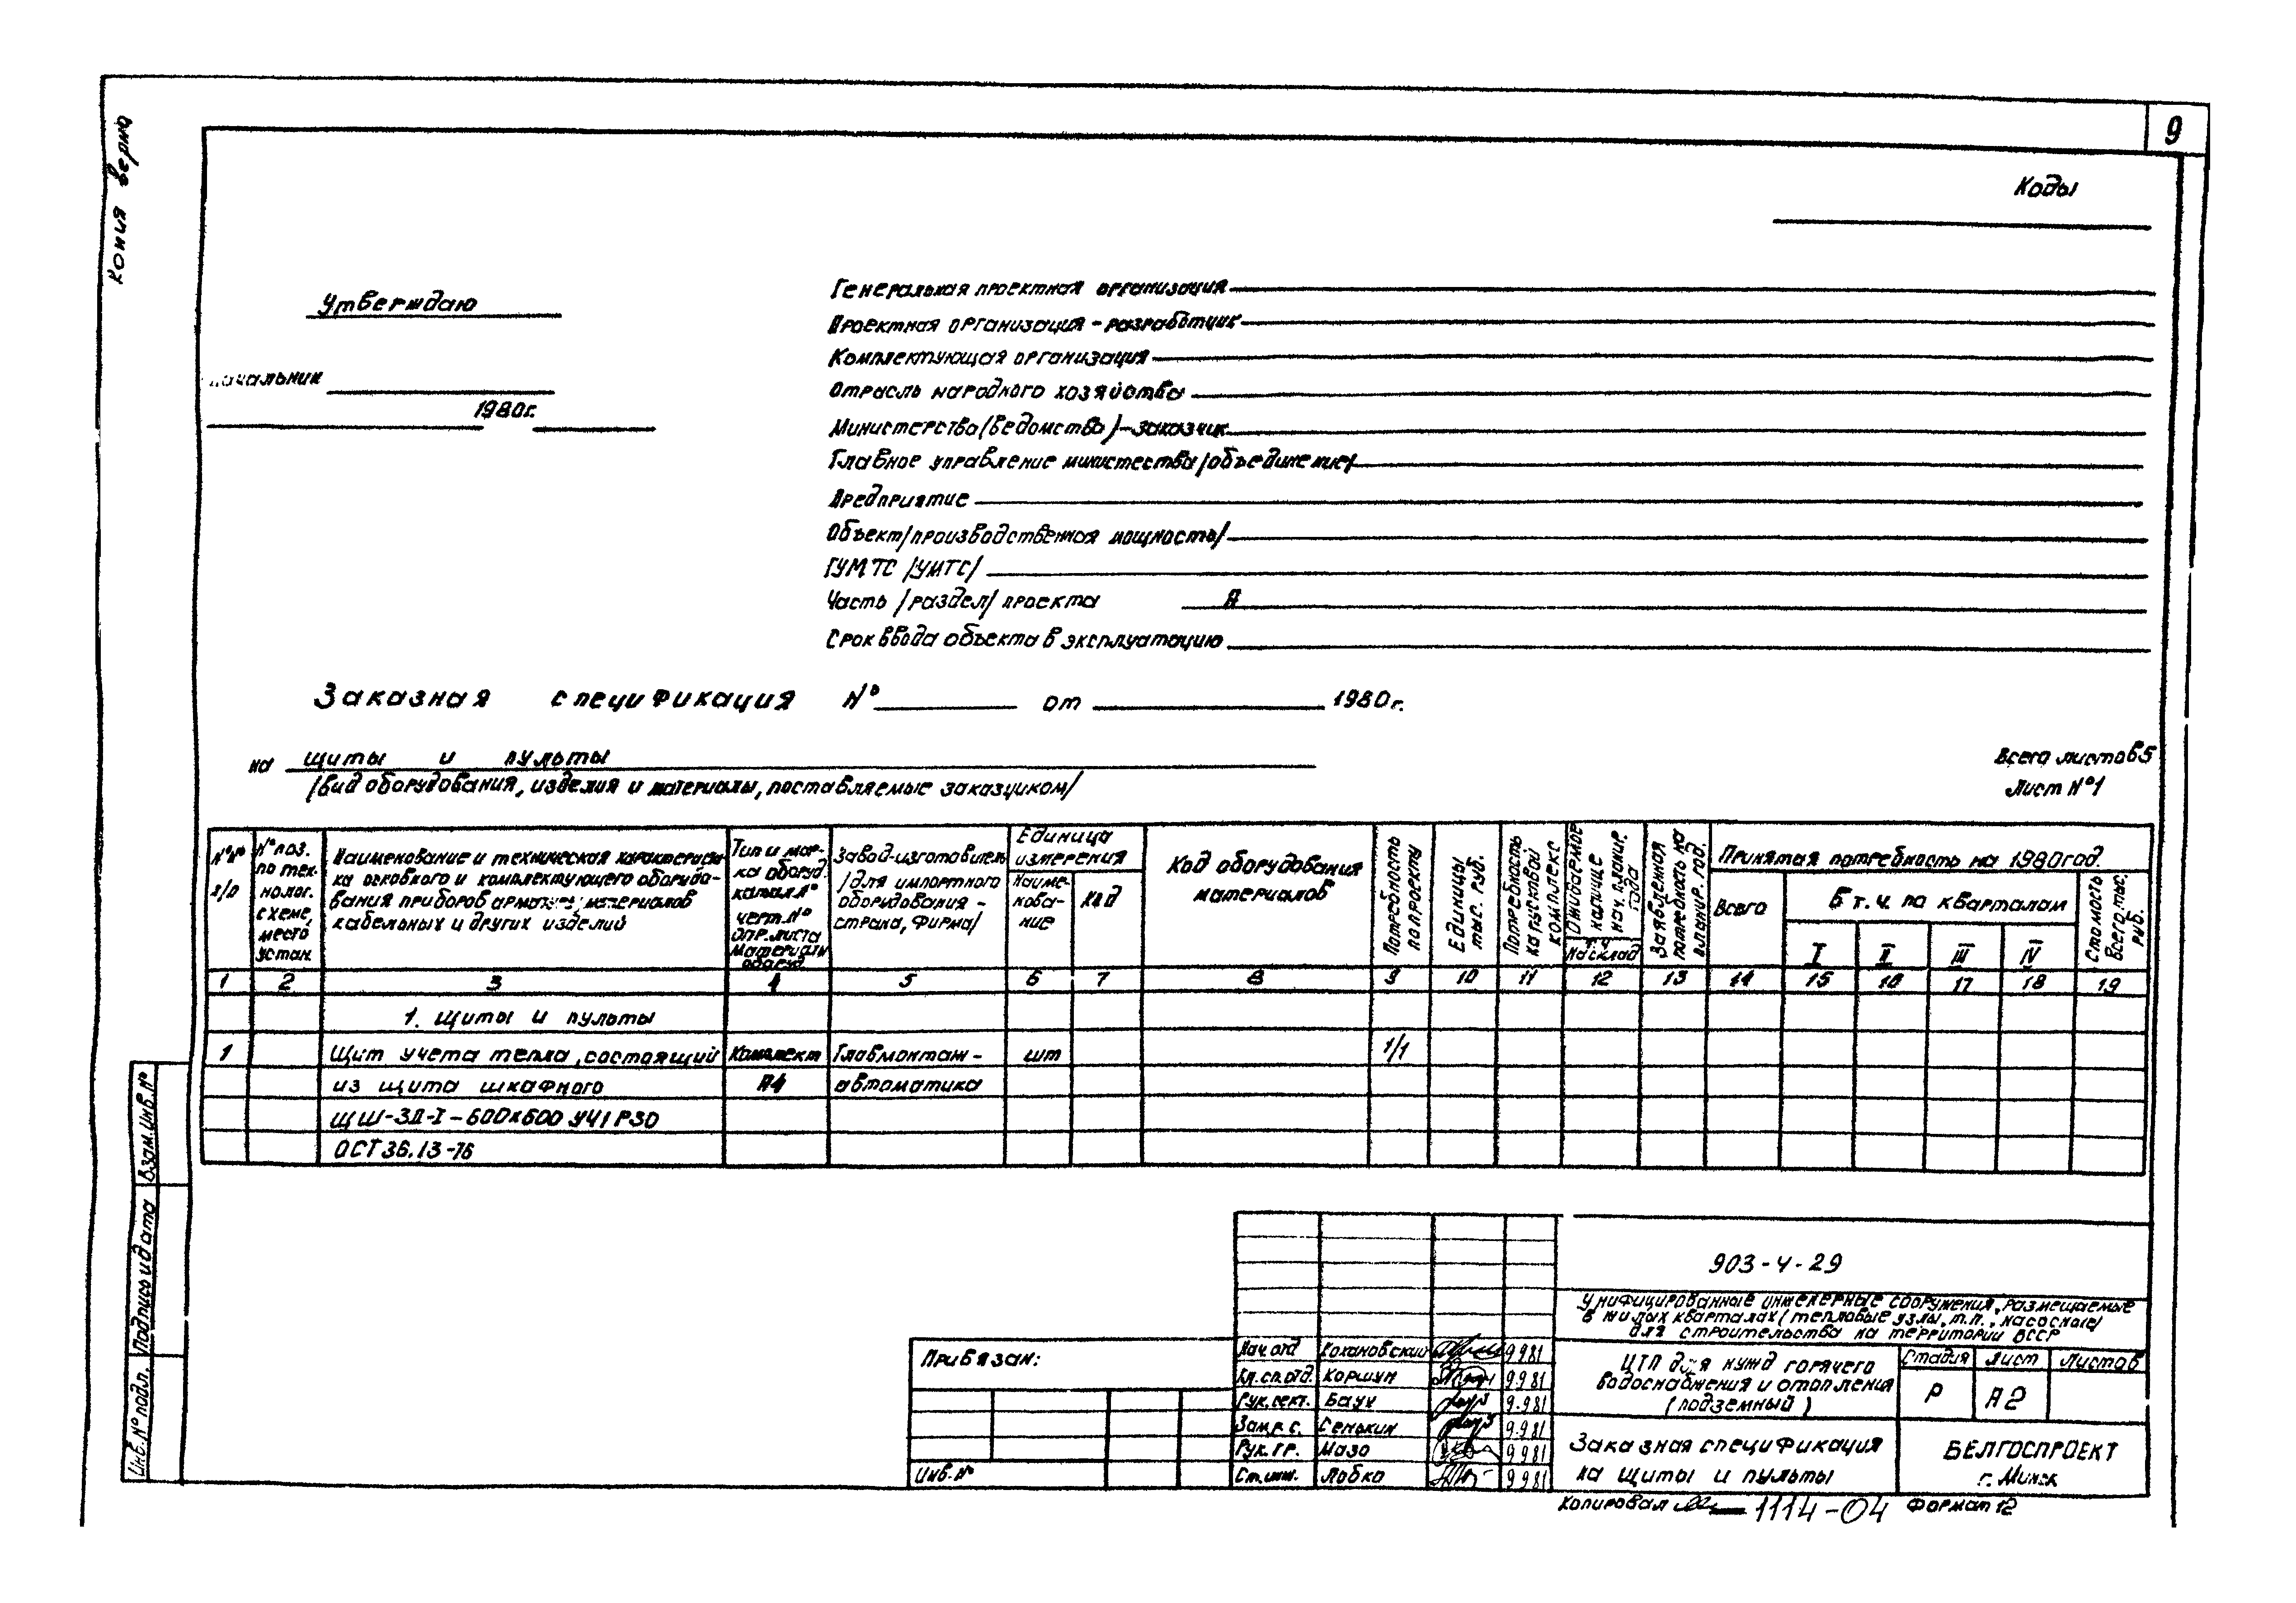 9
Копия верна
Коды
Утверждаю
начальник
1980г.
Генеральная проектная организация
Проектная организация - разработчик
Комплектующая организация
Отрасль народного хозяйства
Министерство (ведомство) - заказчик
Главное управление министества /объединение/
Предприятие
Объект /производственная мощность/
ГУМТС /УМТС/
Часть /раздел/ проекта А
Срок ввода объекта в эксплуатацию
Заказная спецификация № от 1980г.
на щиты и пульты
/вид оборудования, изделия и материалы, поставляемые заказчиком/
Всего листов 5
Лист №1
№№ п/п
№ поз. по технолог. схеме, место устан.
Наименование и техническая характеристи-
ка основного и комплектующего оборудо-
вания приборов арматуры, материалов
кабельных и других изделий
Тип и мар-
ка оборуд.
катал №
черт. №
опр. листа
Материал
оборуд.
Завод-изготовитель
/для импортного
оборудования -
страна, фирма/
Единица
измерения
Наиме-
нова-
ние
Код
Код оборудования
материалов
Потребность
по проекту
Единицы
тыс. руб.
Потребность
на пусковой
комплекс
Ожидаемое
наличие
на нач. планир.
года
т.ч.
на склад
Заявленная
потребность на
планир. год.
Принятая потребность на 1980год.
Всего
В т. ч. по кварталам
I II III IV
Стоимость
Всего, тыс.
руб.
1 2 3 4 5 6 7 8 9 10 11 12 13 14 15 16 17 18 19
1. Щиты и пульты
1 Щит учета тепла, состоящий Комплект Главмонтаж- шт 1/1
из щита шкафного А4 автоматика
ЩШ-ЗД-I-600х600 У41Р30
ОСТ 36.13-76
Взам. инв. №
Подпись и дата
Инв. № подл.
903-4-29
Унифицированные инженерные сооружения, размещаемые
в жилых кварталах (тепловые узлы, т.п., насосные)
для строительства на территории БССР
Привязан:
Инв. №
Нач. отд Кохановский 9 9 81
Гл. сп. отд. Коршун 9.9 81
Рук. сект. Баук 9.9 81
Зам. р. с. Сенькин 9.9 81
Рук. гр. Мазо 9 9 81
Ст. инж. Лобко 9 9 81
ЦТП для нужд горячего
водоснабжения и отопления
(подземный)
Стадия Лист Листов
Р А2
Заказная спецификация
на щиты и пульты
БЕЛГОСПРОЕКТ
г. Минск
Копировал 1114-04 Формат 12